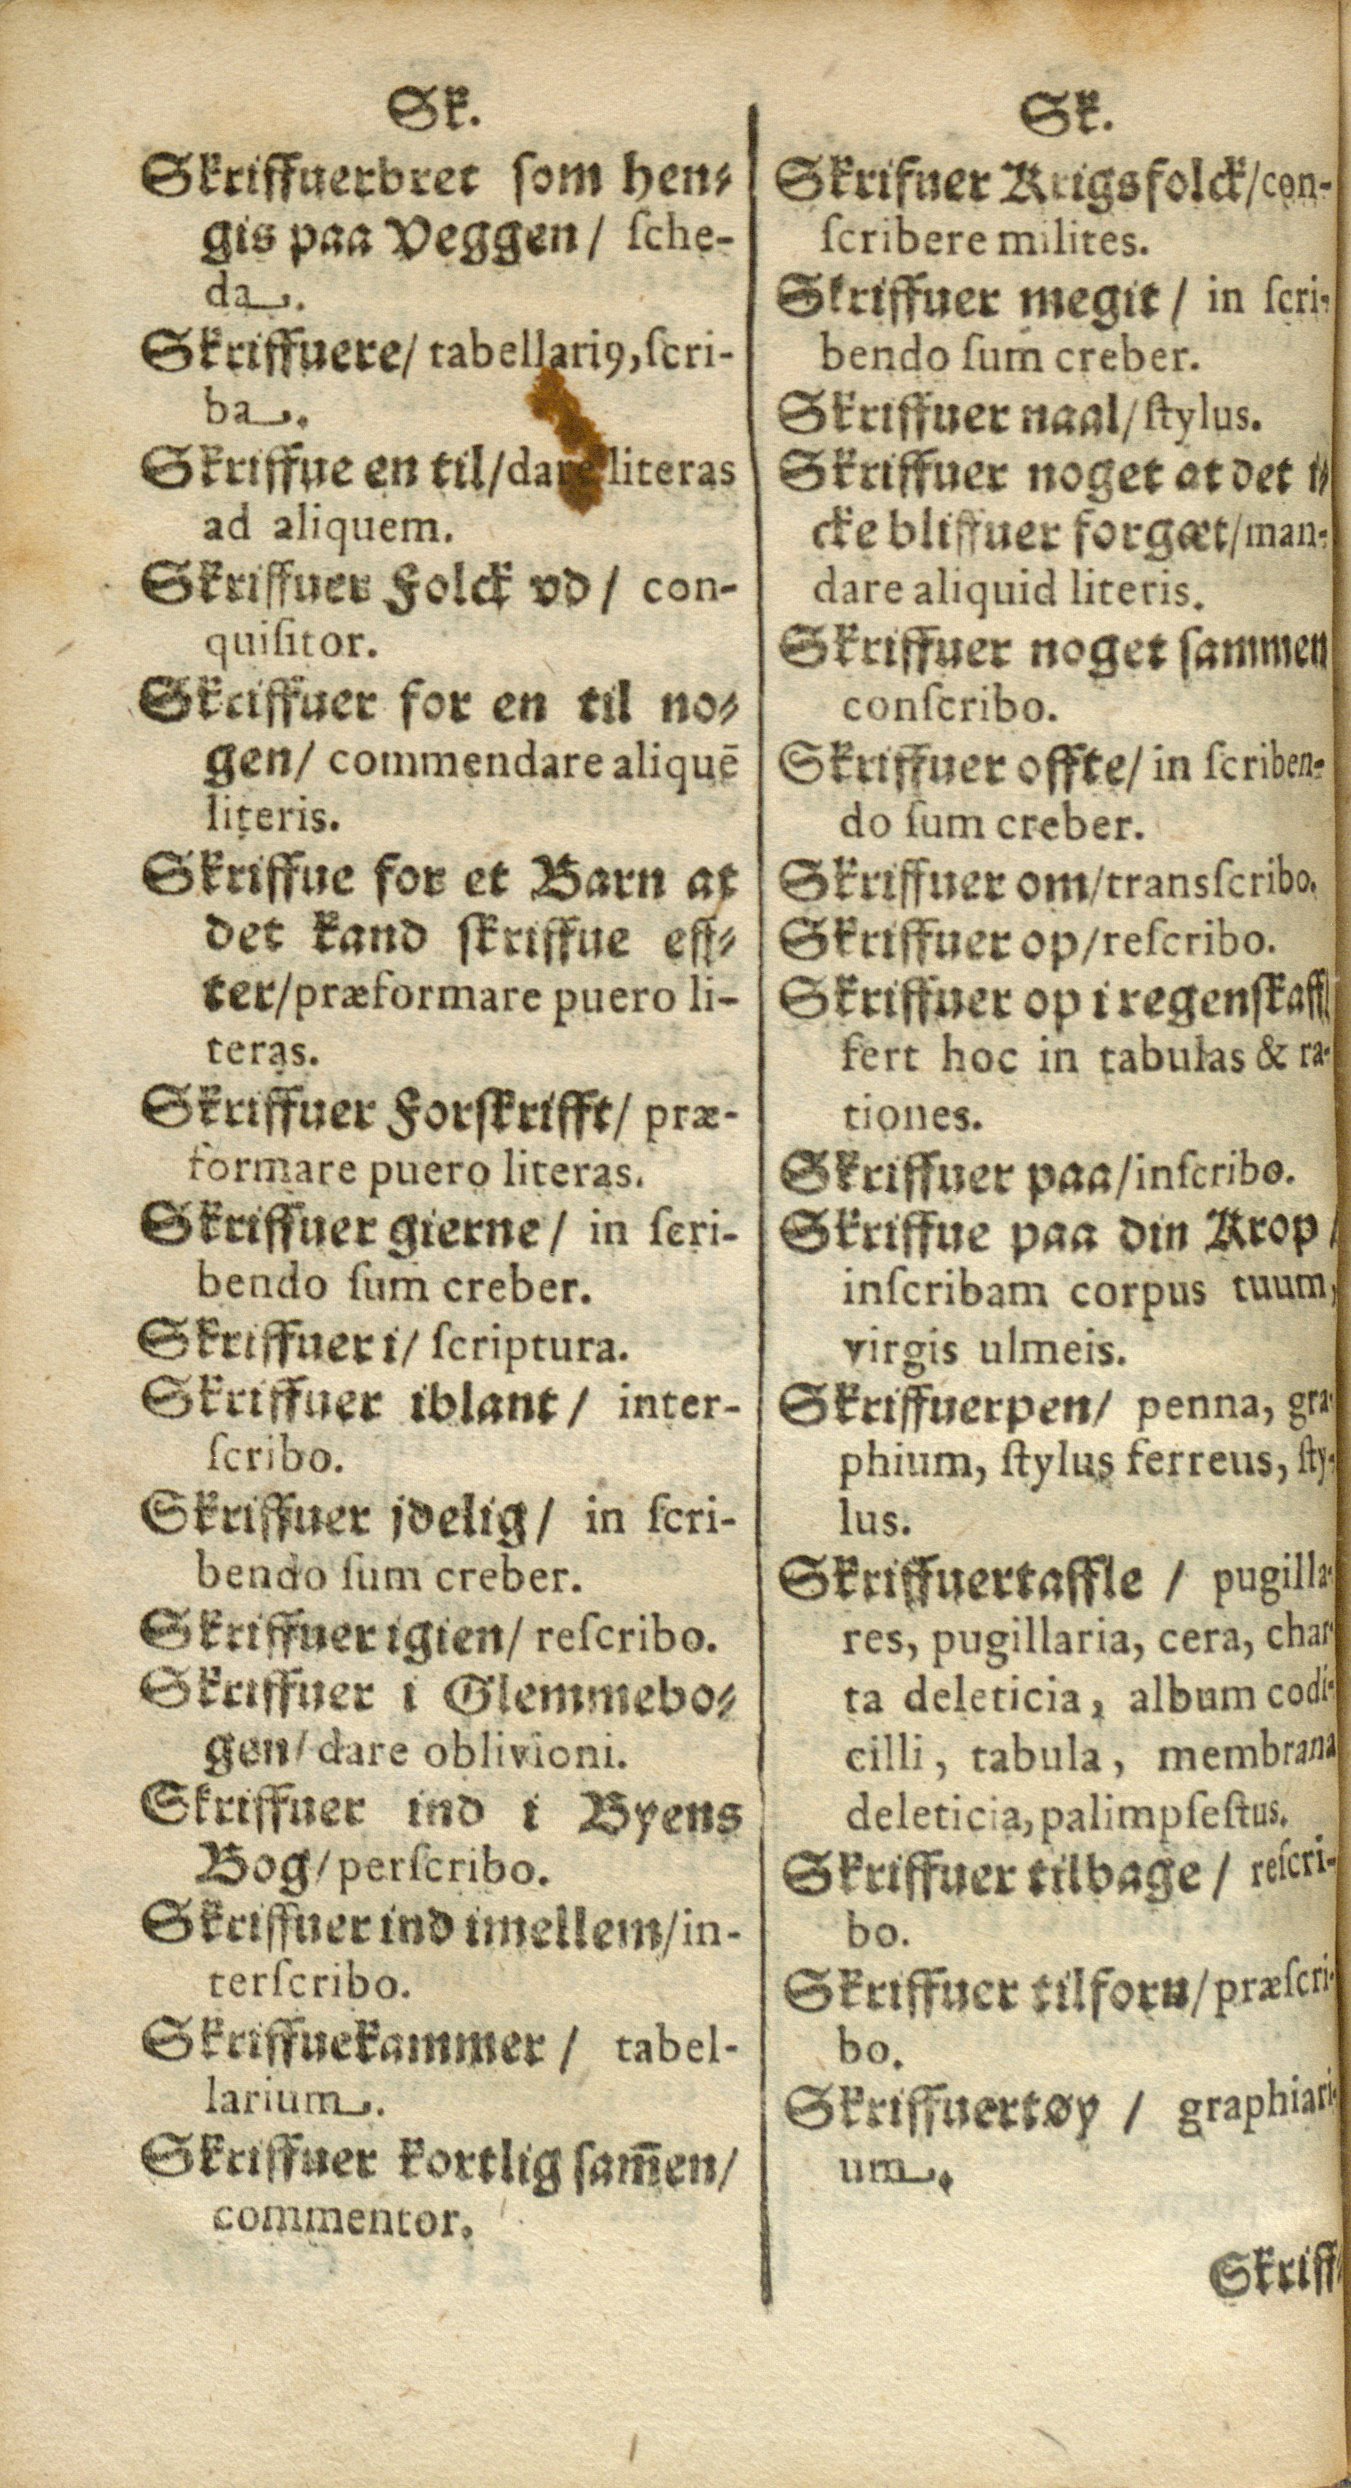 Sk.
Skriffuerbret ſom hen⸗
gis paa Veggen/ ſche-
da.
Skriffuere/ tabellariꝰ, ſcri-
ba.
Skriffue en til/dare literas
ad aliquem.
Skriffuer Folck vd/ con-
quiſitor.
Skriffuer for en til no⸗
gen/ commendare aliquē
literis.
Skriffue for et Barn at
det kand ſkriffue eff⸗
ter/præformare puero li-
teras.
Skriffuer Forſkrifft/ præ-
formare puero literas.
Skriffuer gierne/ in ſcri-
bendo ſum creber.
Skriffuer i/ ſcriptura.
Skriffuer iblant/ inter-
ſcribo.
Skriffuer jdelig/ in ſcri-
bendo ſum creber.
Skriffuer igien/ reſcribo.
Skriffuer i Glemmebo⸗
gen/ dare oblivioni.
Skriffuer ind i Byens
Bog/ perſcribo.
Skriffuer ind imellem/in-
terſcribo.
Skriffuekammer/ tabel-
larium.
Skriffuer kortlig ſam̄en/
commentor.
Sk.
Skrifuer Krigsfolck/con-
ſcribere milites.
Skriffuer megit/ in ſcri-
bendo ſum creber.
Skriffuer naal/ſtylus.
Skriffuer noget at det i⸗
cke bliffuer forgæt/man-
dare aliquid literis.
Skriffuer noget ſammen
conſcribo.
Skriffuer offte/ in ſcriben-
do ſum creber.
Skriffuer om/transſcribo.
Skriffuer op/reſcribo.
Skriffuer op i regenſkaff/
fert hoc in tabulas & ra-
tiones.
Skriffuer paa/inſcribo.
Skriffue paa din Krop/
inſcribam corpus tuum,
virgis ulmeis.
Skriffuerpen/ penna, gra-
phium, ſtylus ferreus, ſty-
lus.
Skriffuertaffle / pugilla-
res, pugillaria, cera, char-
ta deleticia, album codi-
cilli, tabula, membrana
deleticia, palimpſeſtus.
Skriffuer tilbage/ reſcri-
bo.
Skriffuer tilforn/præſcri-
bo.
Skriffuertøy / graphiari-
um.
Skriff⸗